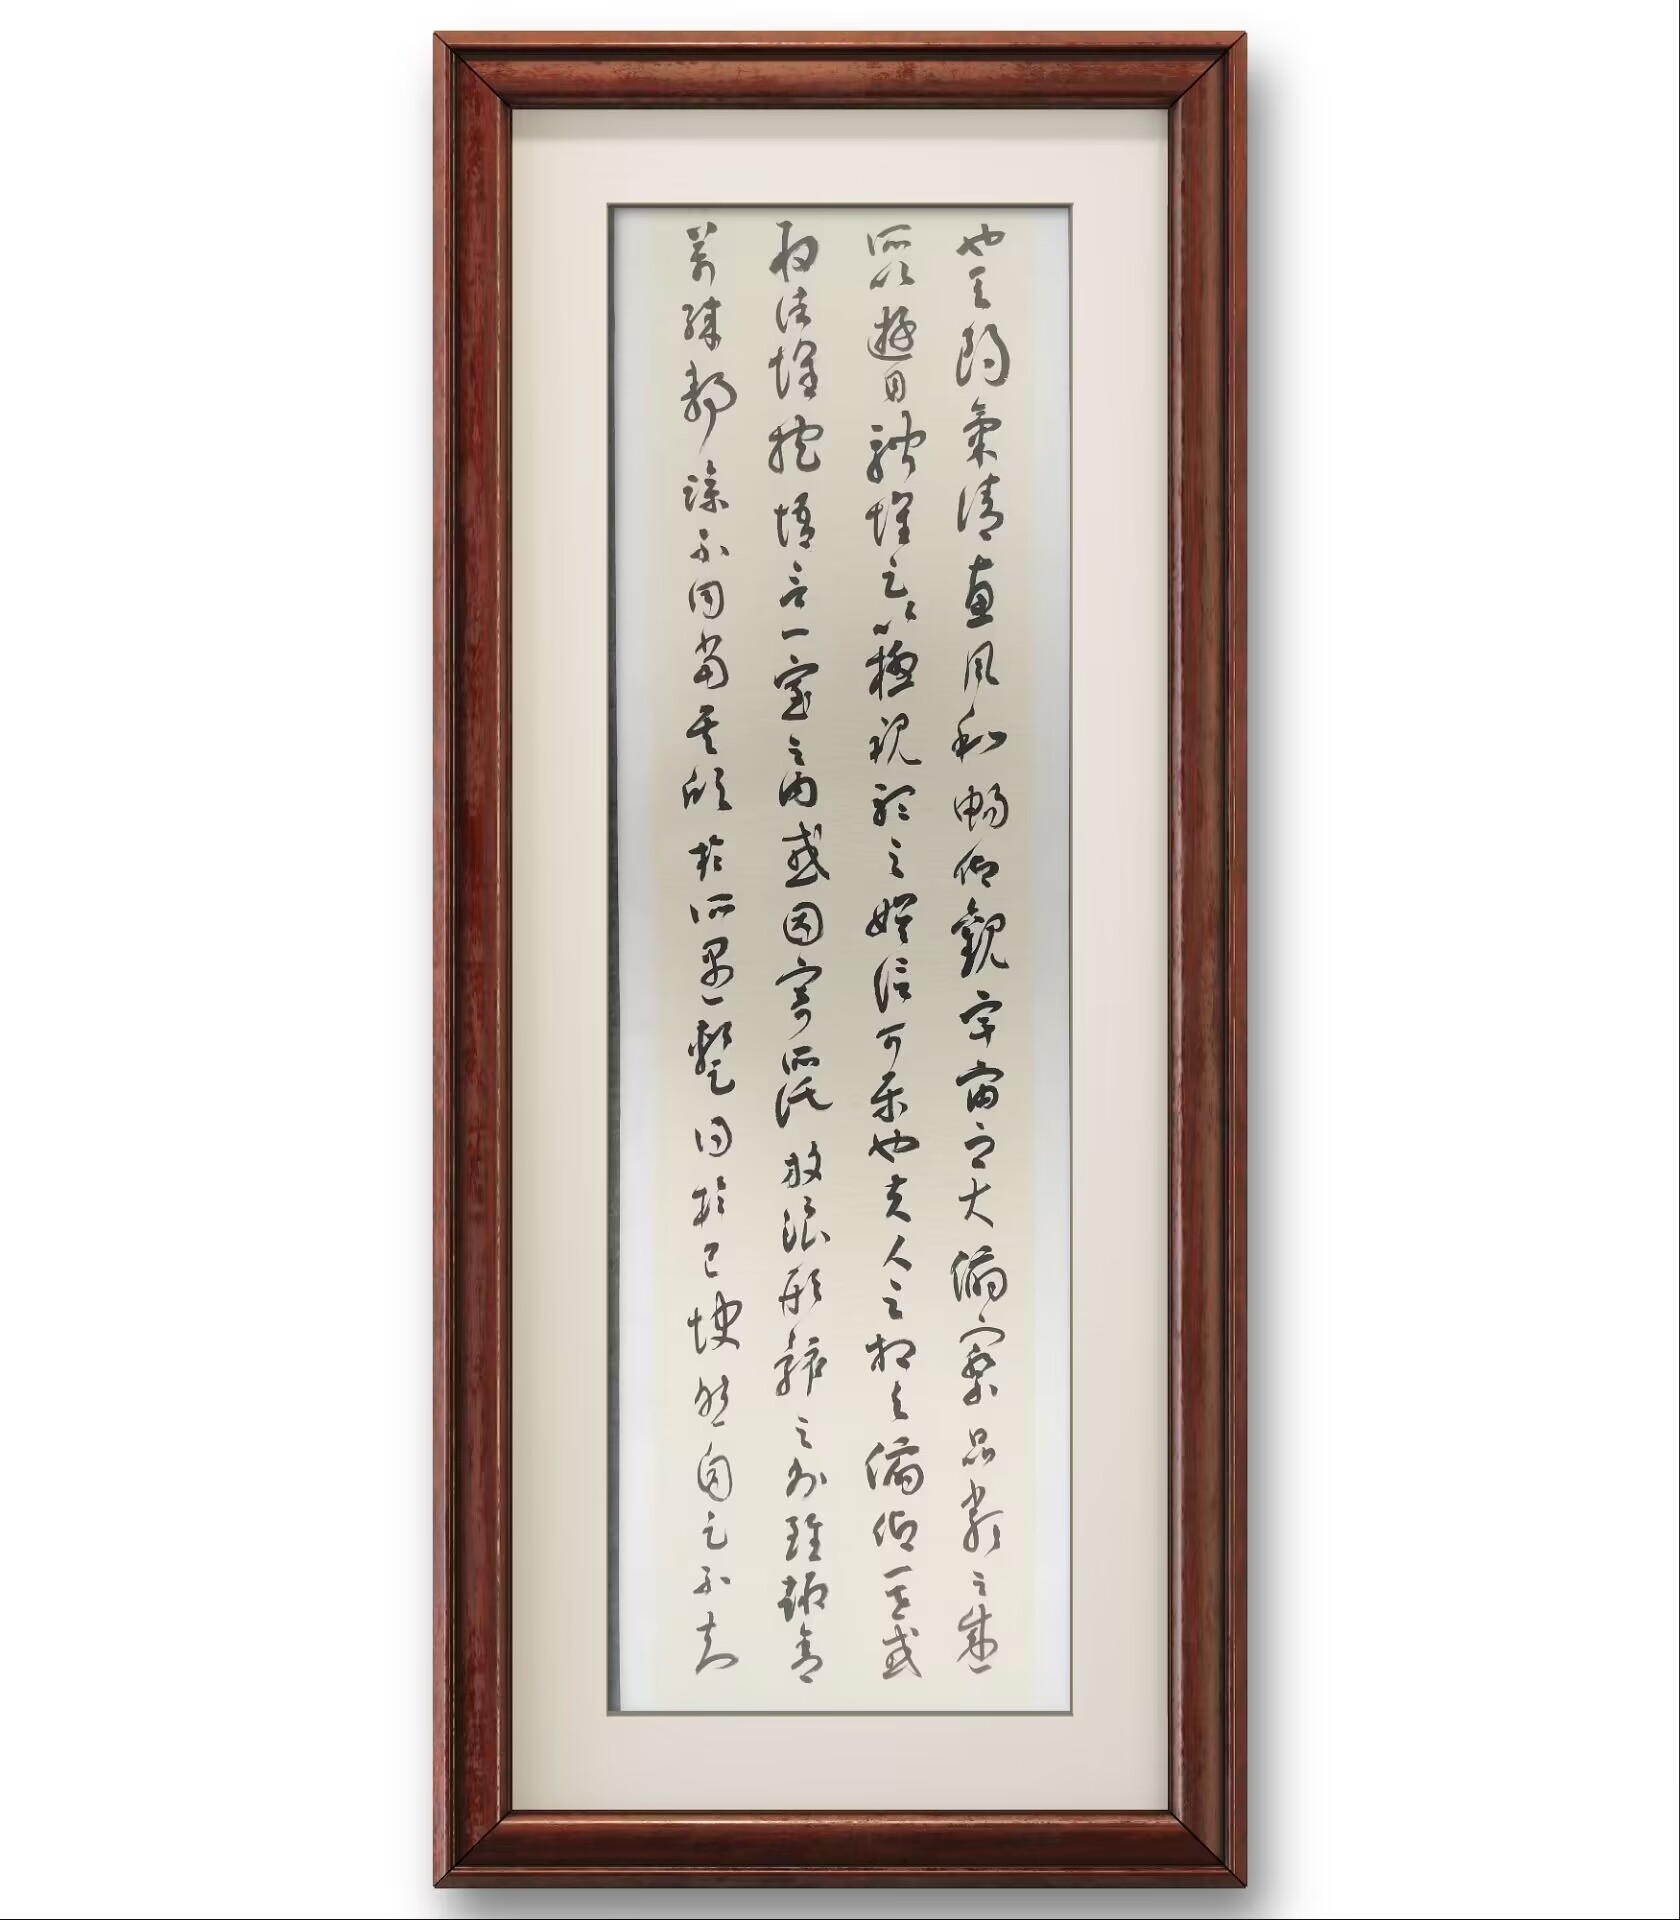 也天朗氣清惠風和暢仰觀宇宙之大俯察品類之盛
所以遊目騁懷足以極視聽之娛信可樂也夫人之相與俯仰一世或
取諸懷抱悟言一室之內或因寄所託放浪形骸之外雖趣舍
萬殊靜躁不同當其欣於所遇暫得於己快然自足不知